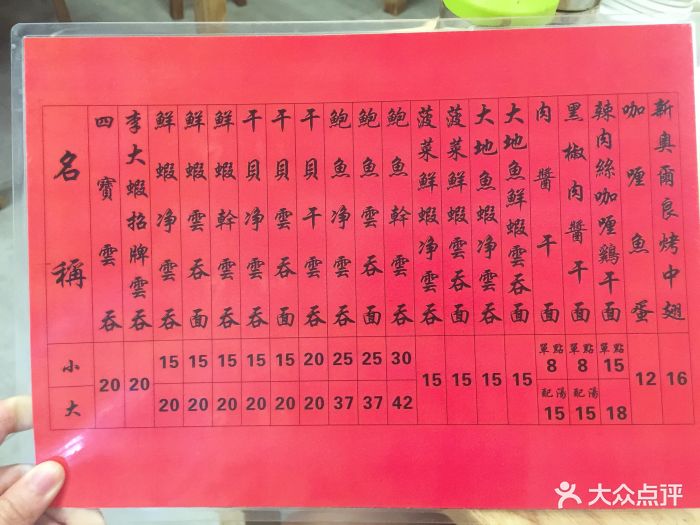 名稱
小
大
四寶雲吞
20
李大蝦招牌雲吞
20
鮮蝦净雲吞
15
20
鮮蝦雲吞面
15
20
鮮蝦幹雲吞
15
20
干貝净雲吞
15
20
干貝雲吞面
15
20
干貝干雲吞
20
20
鮑魚净雲吞
25
37
鮑魚雲吞面
25
37
鮑魚幹雲吞
30
42
菠菜鮮蝦净雲吞
15
菠菜鮮蝦雲吞面
15
大地魚蝦净雲吞
15
大地魚鮮蝦雲吞面
15
肉醬干面
單點
8
配湯
15
黑椒肉醬干面
單點
8
配湯
15
辣肉絲咖喱鷄干面
單點
15
18
咖喱魚蛋
12
新奧爾良烤中翅
16
大众点评